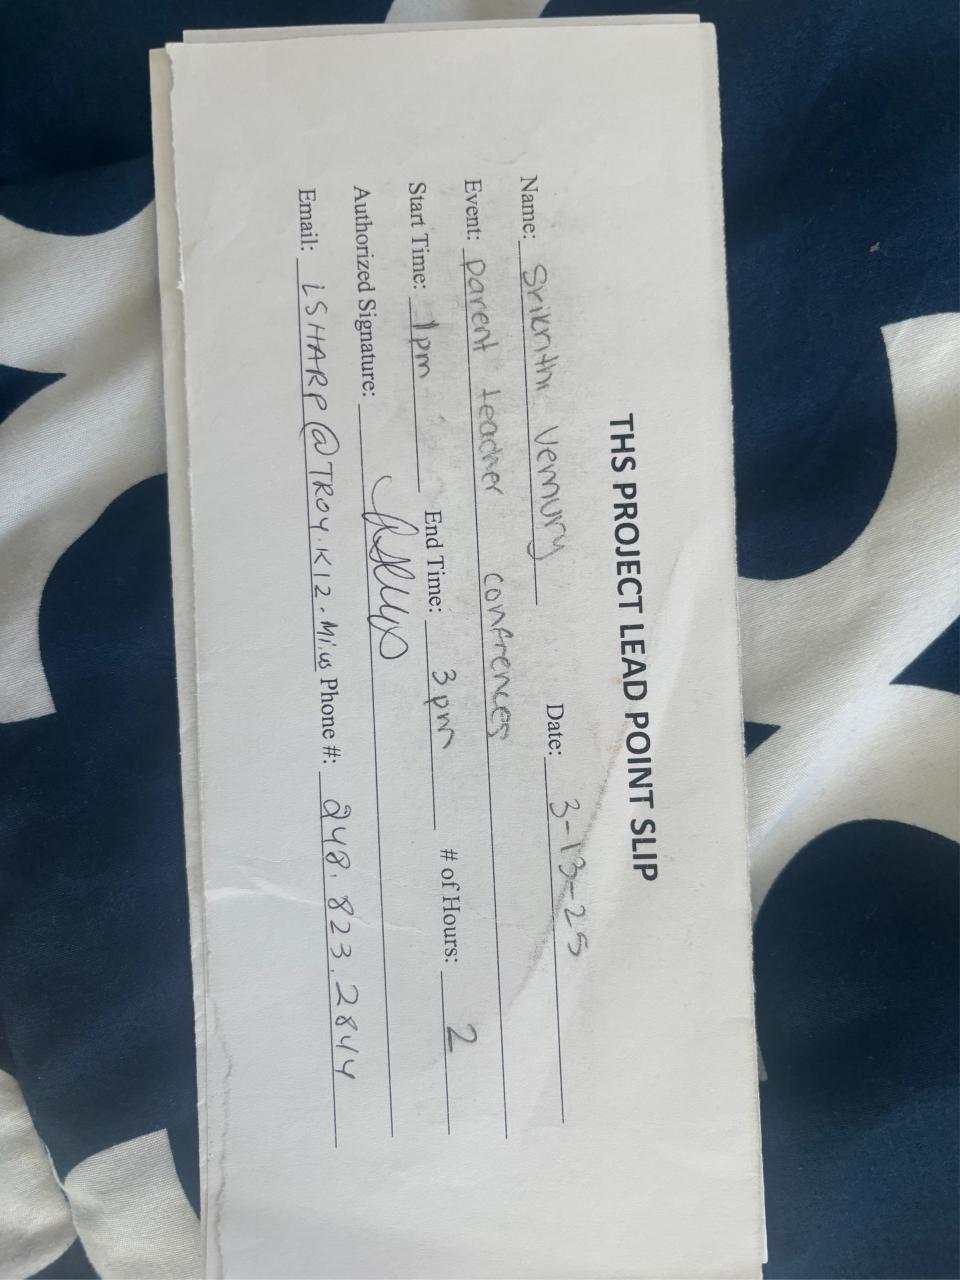 THS PROJECT LEAD POINT SLIP
Name: Srikrithi Vemury Date: 3-13-25
Event: parent teacher confrences
Start Time: 1pm End Time: 3pm # of Hours: 2
Authorized Signature:
Email: LSHARP@TROY.K12.Mi.us Phone #: 248.823.2844